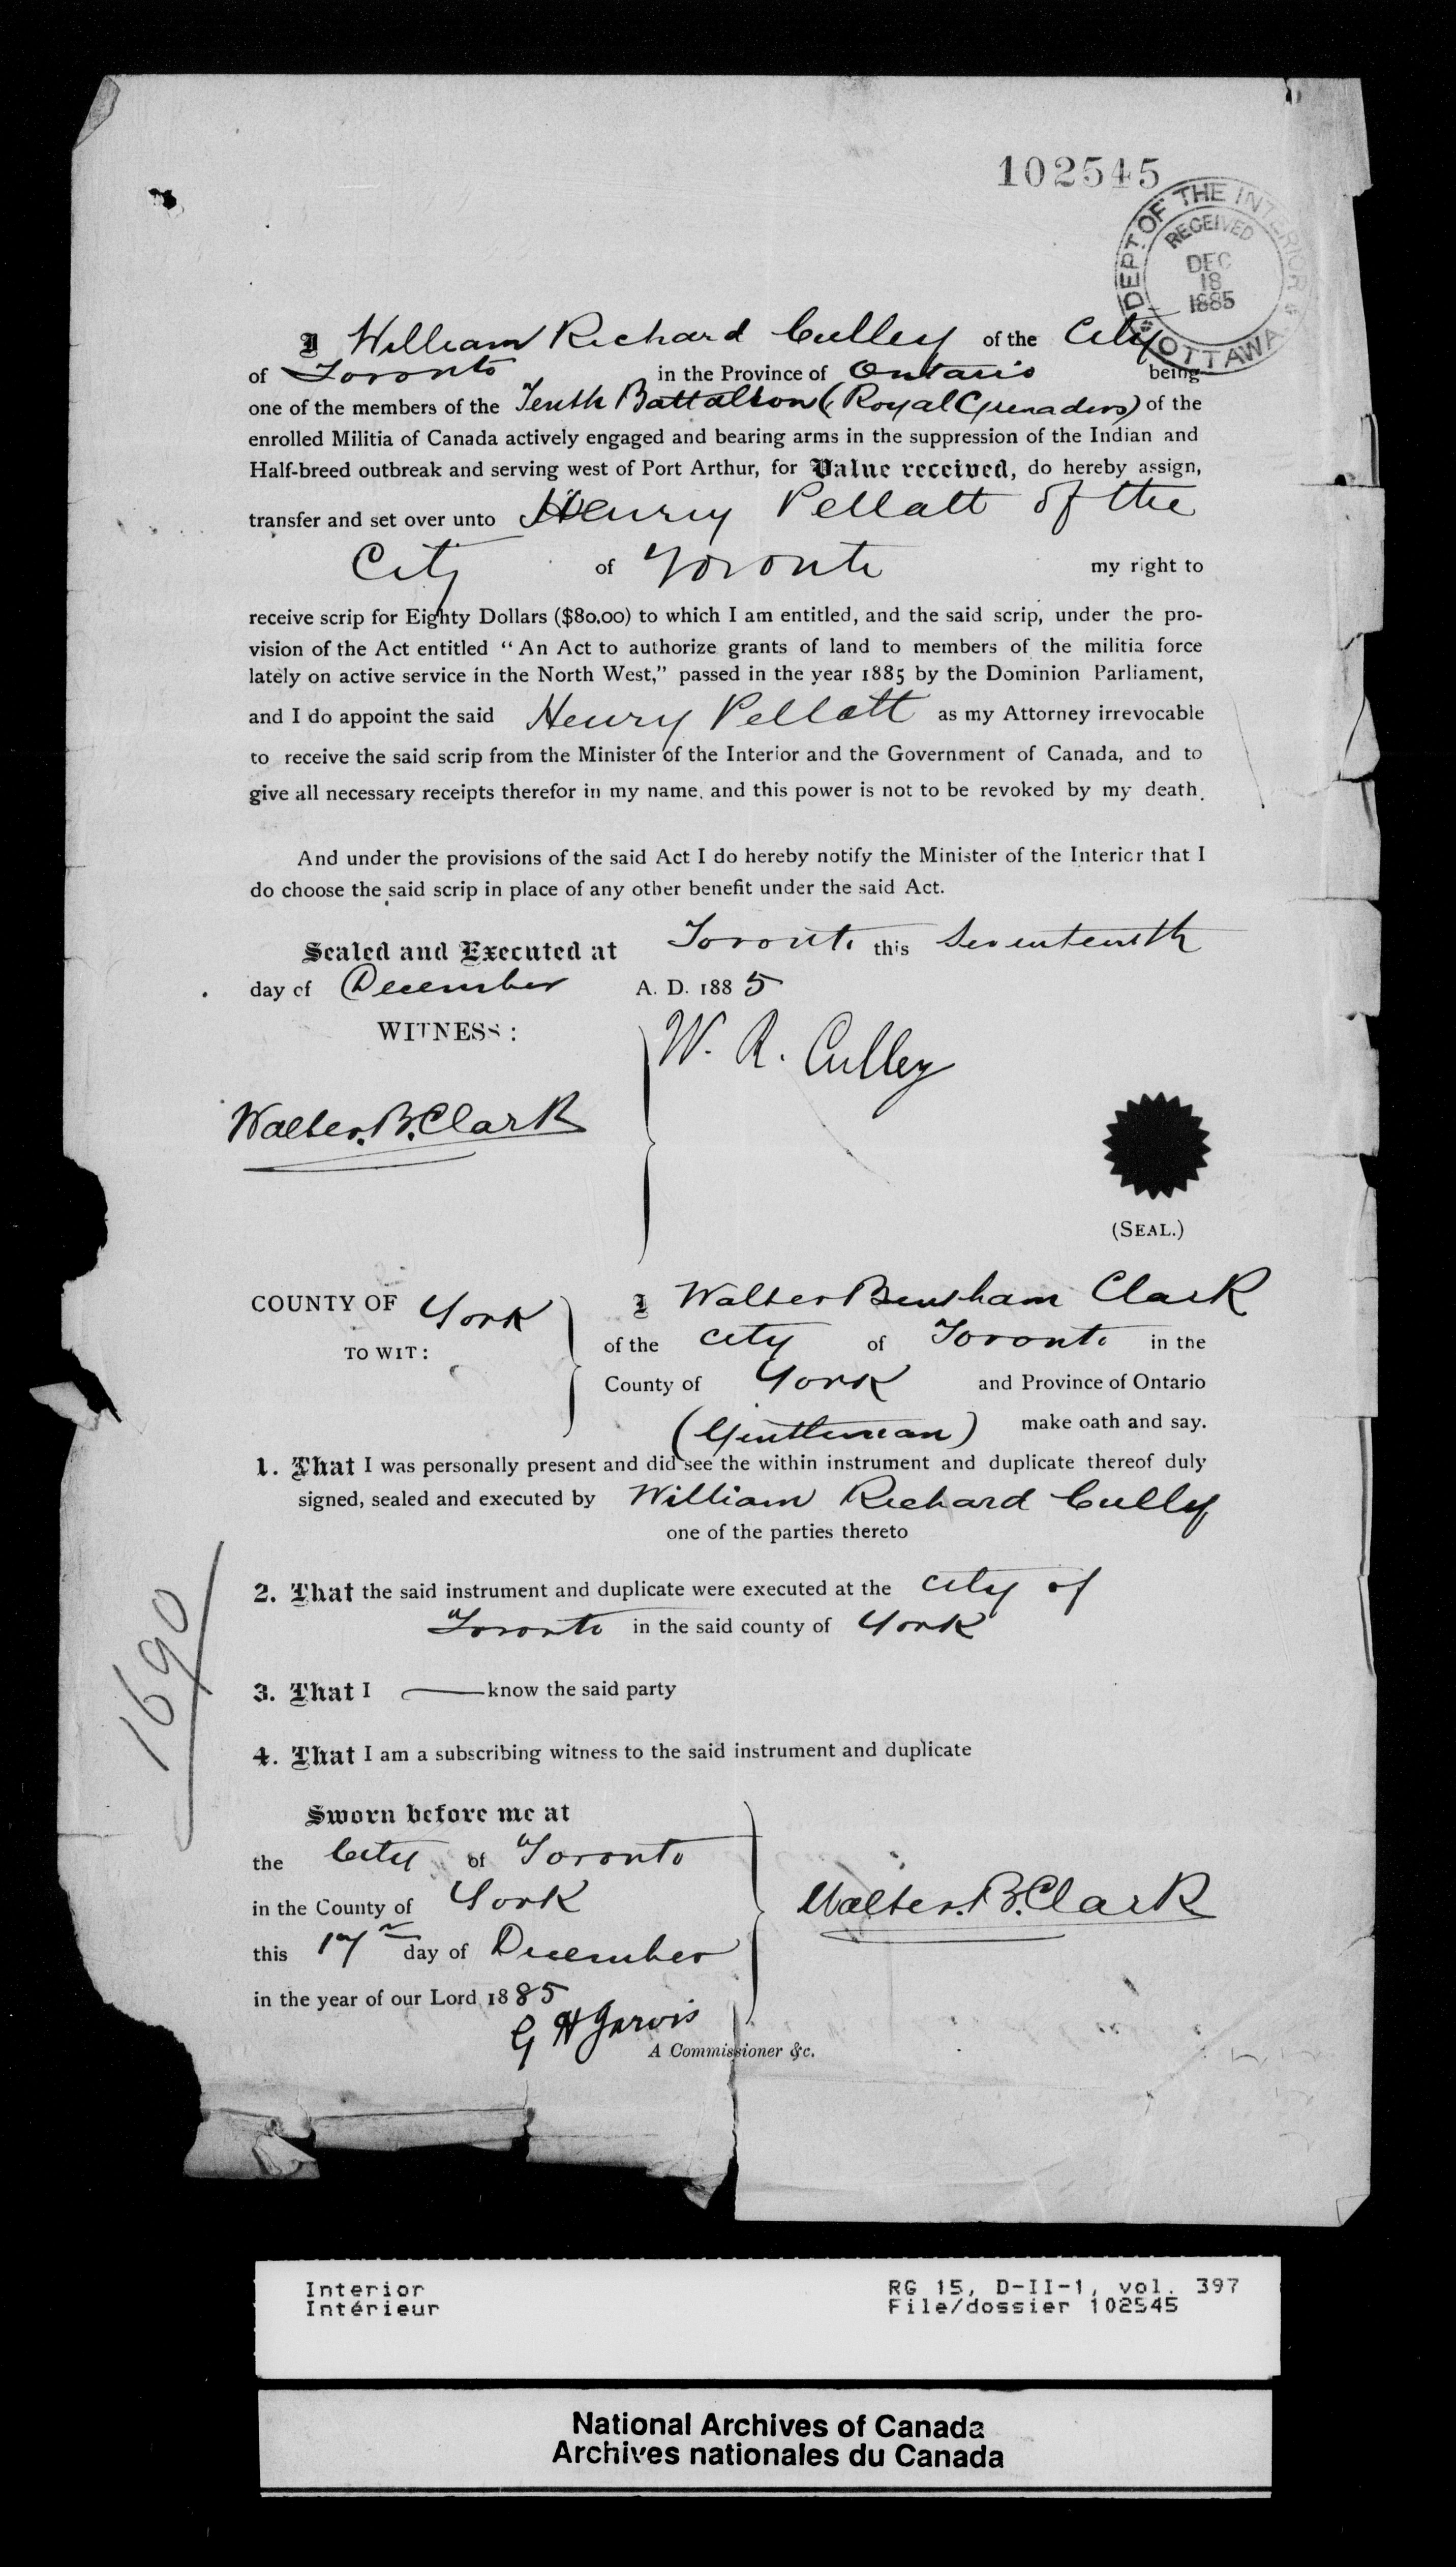 102545
DEPT. OF THE INTERIOR
RECEIVED
DEC
18
1885
OTTAWA
I William Richard Culley of the City
of Toronto in the Province of Ontario being
one of the members of the Tenth Battalion (Royal Grenadiers) of the
enrolled Militia of Canada actively engaged and bearing arms in the suppression of the Indian and
Half-breed outbreak and serving west of Port Arthur, for Value received, do hereby assign,
transfer and set over unto Henry Pellatt of the
City of Toronto my right to
receive scrip for Eighty Dollars ($80.00) to which I am entitled, and the said scrip, under the pro-
vision of the Act entitled "An Act to authorize grants of land to members of the militia force
lately on active service in the North West," passed in the year 1885 by the Dominion Parliament,
and I do appoint the said Henry Pellatt as my Attorney irrevocable
to receive the said scrip from the Minister of the Interior and the Government of Canada, and to
give all necessary receipts therefor in my name, and this power is not to be revoked by my death.
And under the provisions of the said Act I do hereby notify the Minister of the Interior that I
do choose the said scrip in place of any other benefit under the said Act.
Sealed and Executed at Toronto this Seventeenth
day of December A. D. 1885
WITNESS:
W. R. Culley
Walter. B. Clark
(SEAL.)
COUNTY OF York
TO WIT:
I Walter Bentham Clark
of the City of Toronto in the
County of York and Province of Ontario
(Gentleman) make oath and say.
1. That I was personally present and did see the within instrument and duplicate thereof duly
signed, sealed and executed by William Richard Culley
one of the parties thereto
2. That the said instrument and duplicate were executed at the City of
Toronto in the said county of York
3. That I know the said party
4. That I am a subscribing witness to the said instrument and duplicate
1690
Sworn before me at
the City of Toronto
in the County of York
this 17th day of December
in the year of our Lord 1885
Walter. B. Clark
G H Jarvis
A Commissioner &c.
Interior
Intérieur
RG 15, D-II-1, vol. 397
File/dossier 102545
National Archives of Canada
Archives nationales du Canada